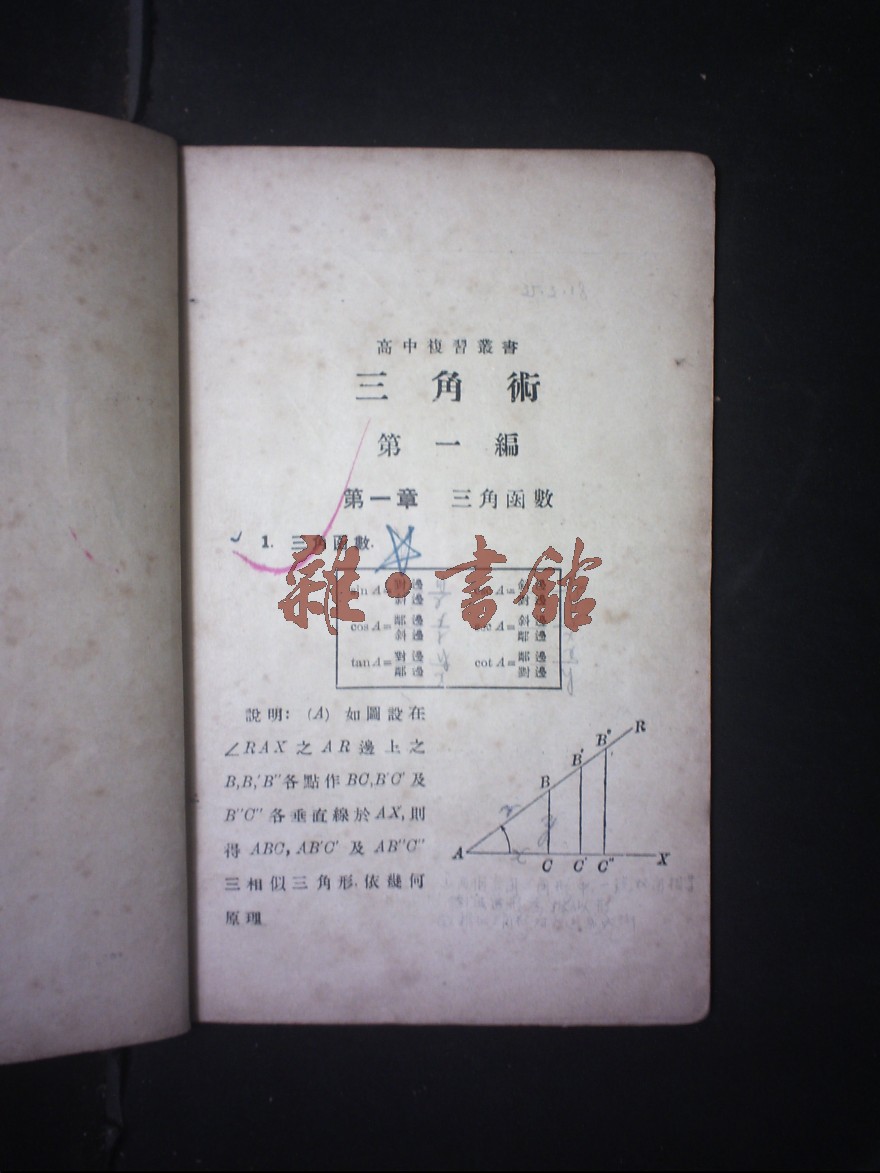 高中複習叢書
三角術
第一編
第一章 三角函數
1. 三角函數.
雜·書館
sin A= 對邊
cos A= 鄰邊/斜邊 sec A= 斜邊/鄰邊
tan A= 對邊/鄰邊 cot A= 鄰邊/對邊
說明: (A) 如圖設在
∠RAX 之 AR 邊上之
B,B,'B''各點作 BC,B'C' 及
B''C'' 各垂直線於 AX,則
得 ABC, AB'C' 及 AB''C''
三相似三角形.依幾何
原理
R
B''
B'
B
A
C C' C'' X